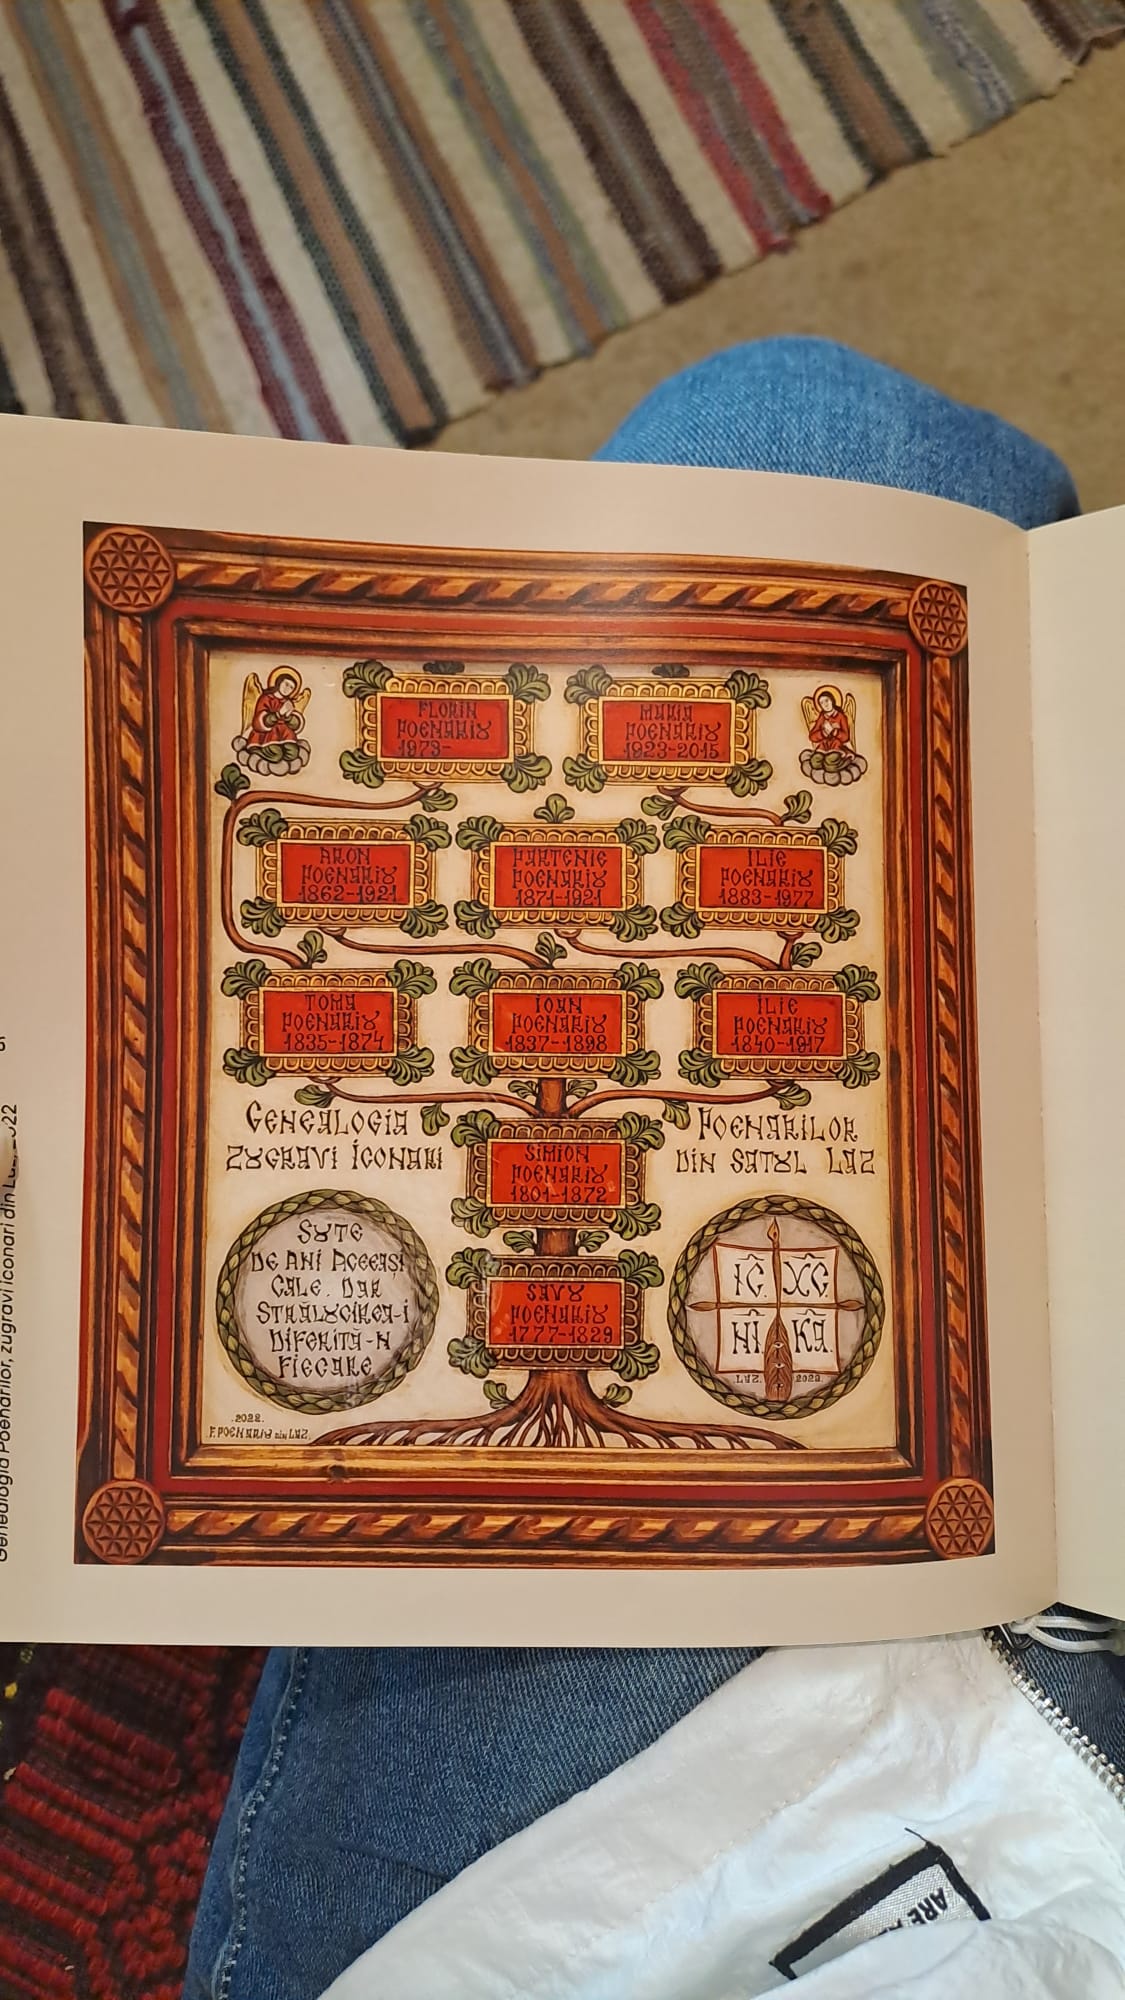 FLORIN
POENARIȢ
1973-
MARIA
POENARIȢ
1923-2015
ARON
POENARIȢ
1862-1921
PARTENIE
POENARIȢ
1871-1921
ILIE
POENARIȢ
1883-1977
TOMA
POENARIȢ
1835-1874
IOAN
POENARIȢ
1837-1898
ILIE
POENARIȢ
1840-1917
GENEALOGIA POENARILOR
ZȢGRAVI ICONARI DIN SATȢL LAZ
SIMION
POENARIȢ
1801-1872
SȢTE
DE ANI ACEEAȘI
CALE. DAR
STRĂLȢCIREA-I
DIFERITĂ-N
FIECARE
SAVȢ
POENARIȢ
1777-1829
IC. XC.
NI. KA.
.LAZ. 2022.
.2022.
F. POENARIȢ DIN LAZ.
Genealogia Poenarilor, zugravi iconari din
ARE